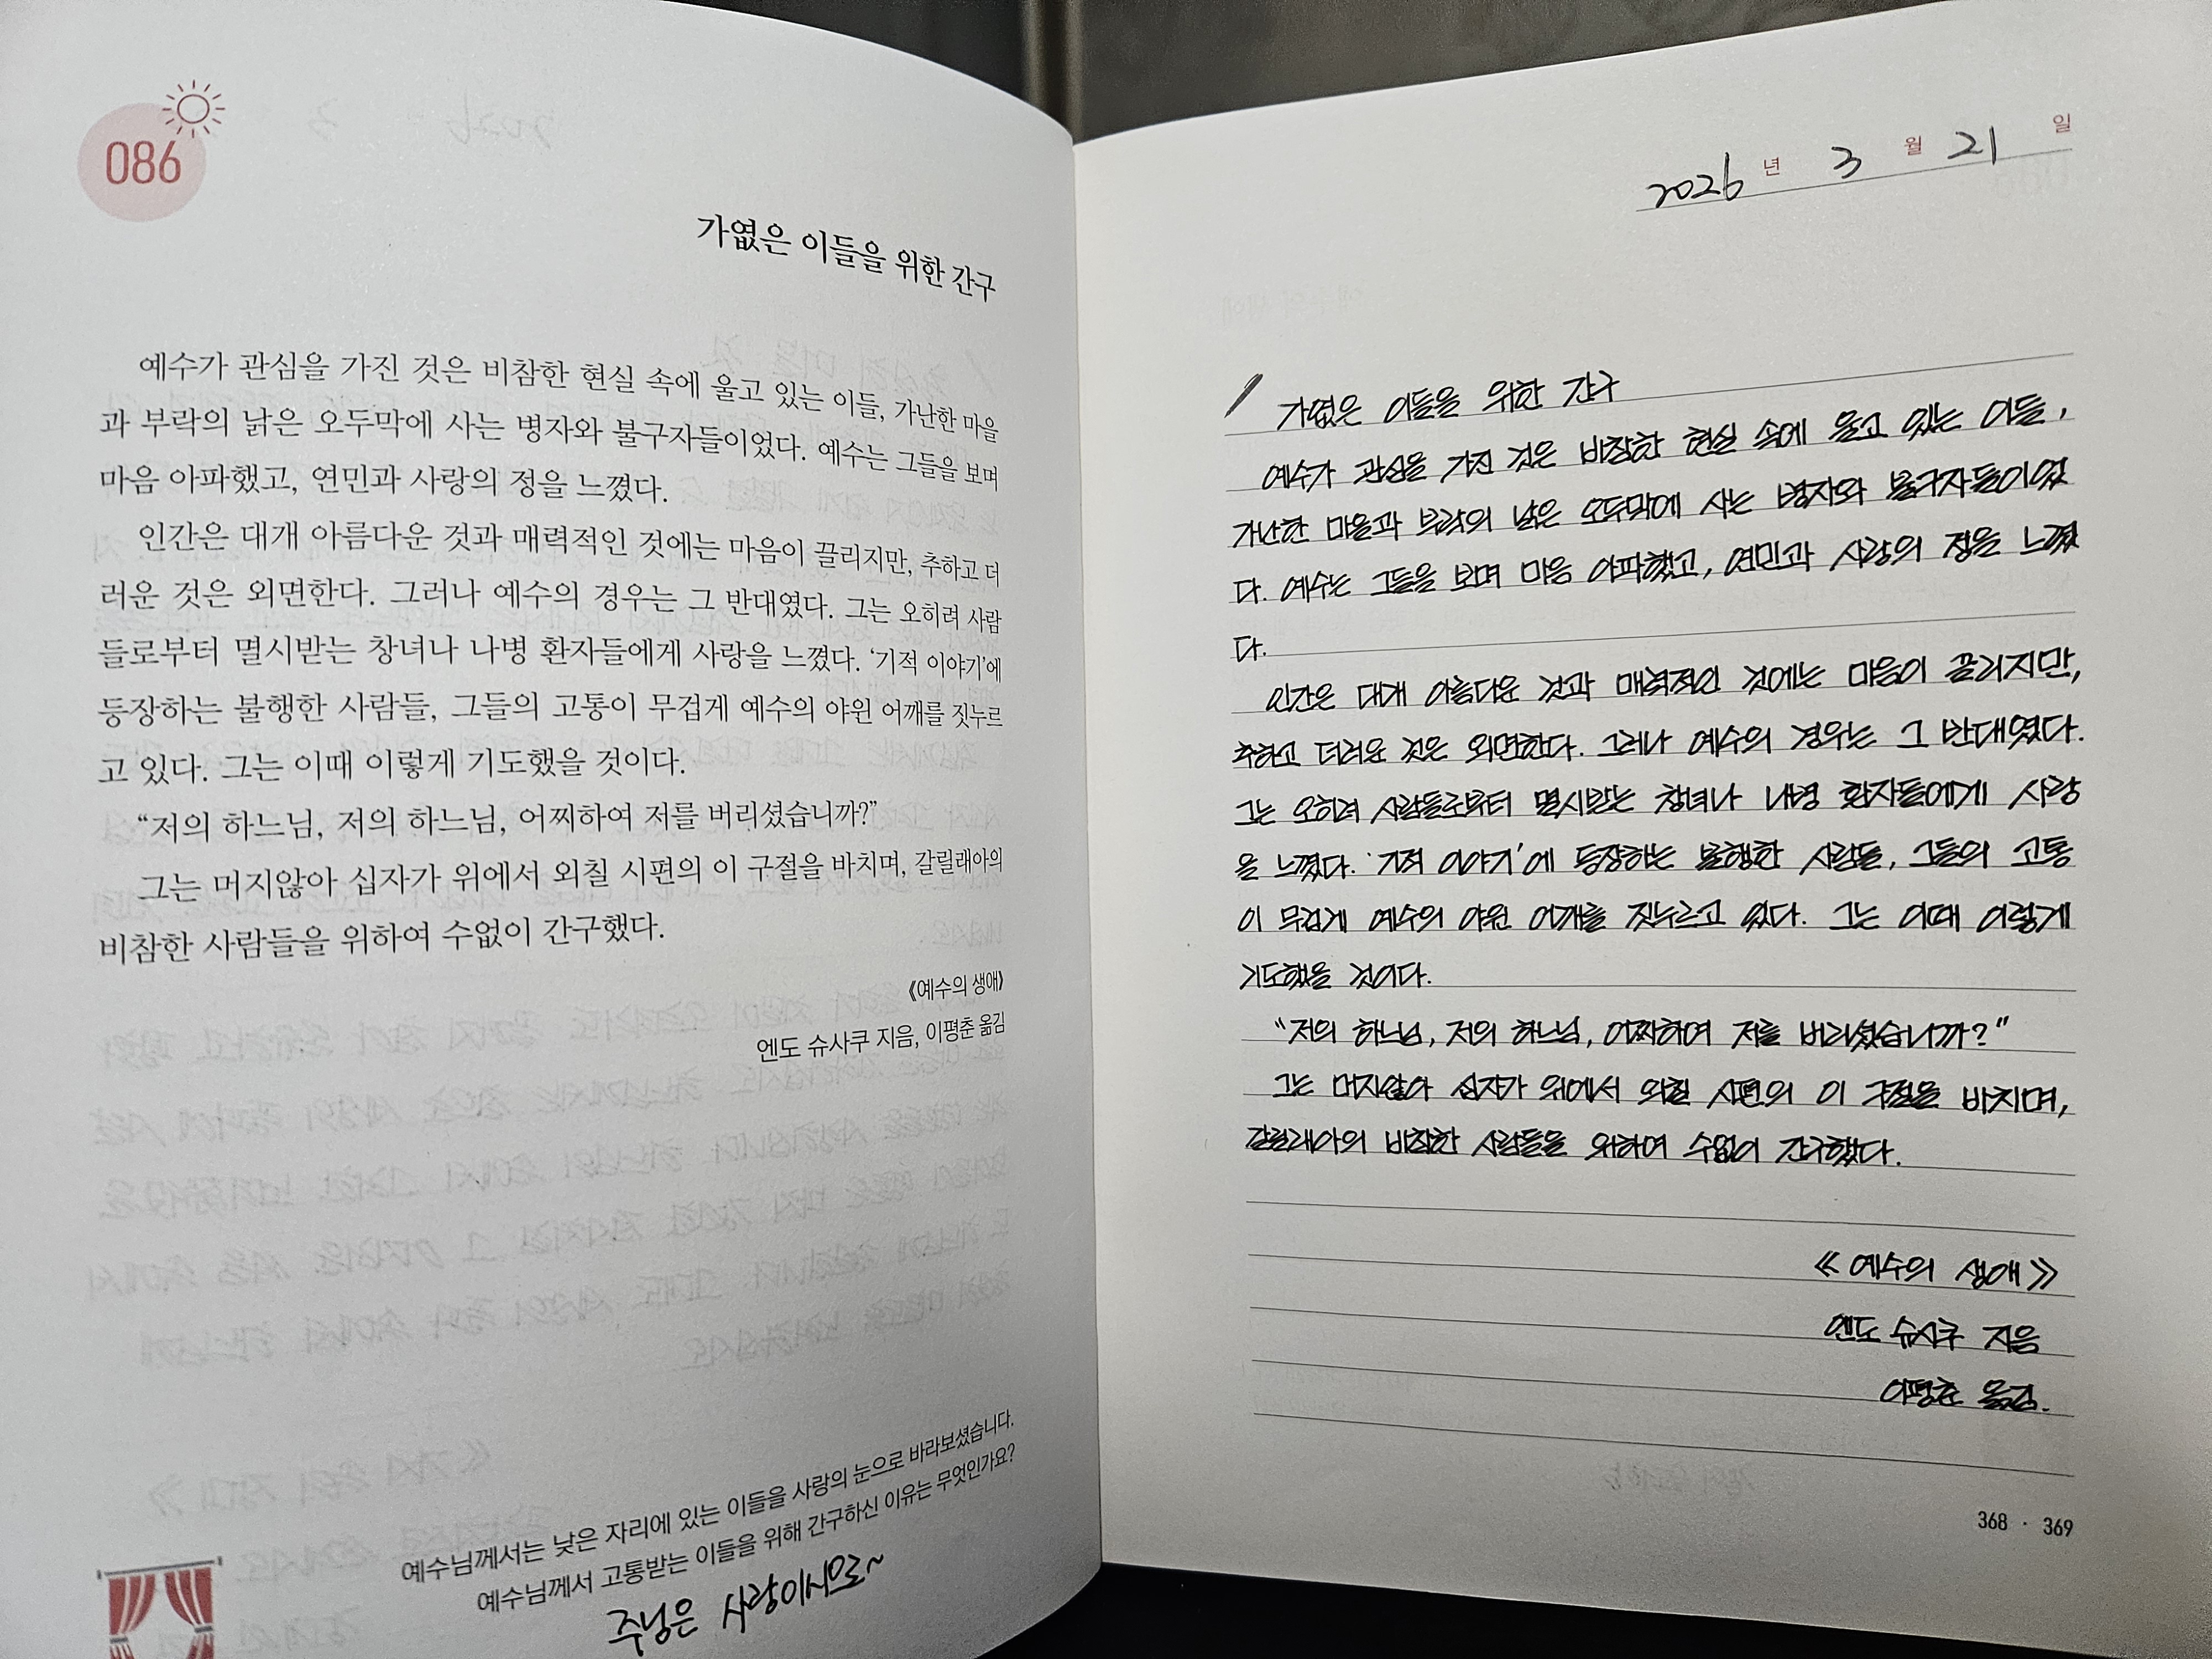 086
가엾은 이들을 위한 간구
예수가 관심을 가진 것은 비참한 현실 속에 울고 있는 이들, 가난한 마을
과 부락의 낡은 오두막에 사는 병자와 불구자들이었다. 예수는 그들을 보며
마음 아파했고, 연민과 사랑의 정을 느꼈다.
인간은 대개 아름다운 것과 매력적인 것에는 마음이 끌리지만, 추하고 더
러운 것은 외면한다. 그러나 예수의 경우는 그 반대였다. 그는 오히려 사람
들로부터 멸시받는 창녀나 나병 환자들에게 사랑을 느꼈다. ‘기적 이야기’에
등장하는 불행한 사람들, 그들의 고통이 무겁게 예수의 야윈 어깨를 짓누르
고 있다. 그는 이때 이렇게 기도했을 것이다.
“저의 하느님, 저의 하느님, 어찌하여 저를 버리셨습니까?”
그는 머지않아 십자가 위에서 외칠 시편의 이 구절을 바치며, 갈릴래아의
비참한 사람들을 위하여 수없이 간구했다.
《예수의 생애》
엔도 슈사쿠 지음, 이평춘 옮김
예수님께서는 낮은 자리에 있는 이들을 사랑의 눈으로 바라보셨습니다.
예수님께서 고통받는 이들을 위해 간구하신 이유는 무엇인가요?
주님은 사랑이시므로~
2026 년 3 월 21 일
가엾은 이들을 위한 간구
예수가 관심을 가진 것은 비참한 현실 속에 울고 있는 이들,
가난한 마을과 부락의 낡은 오두막에 사는 병자와 불구자들이었
다. 예수는 그들을 보며 마음 아파했고, 연민과 사랑의 정을 느꼈
다.
인간은 대개 아름다운 것과 매력적인 것에는 마음이 끌리지만,
추하고 더러운 것은 외면한다. 그러나 예수의 경우는 그 반대였다.
그는 오히려 사람들로부터 멸시받는 창녀나 나병 환자들에게 사랑
을 느꼈다. ‘기적 이야기’에 등장하는 불행한 사람들, 그들의 고통
이 무겁게 예수의 야윈 어깨를 짓누르고 있다. 그는 이때 이렇게
기도했을 것이다.
“저의 하느님, 저의 하느님, 어찌하여 저를 버리셨습니까?”
그는 머지않아 십자가 위에서 외칠 시편의 이 구절을 바치며,
갈릴래아의 비참한 사람들을 위하여 수없이 간구했다.
《예수의 생애》
엔도 슈사쿠 지음
이평춘 옮김.
368 · 369